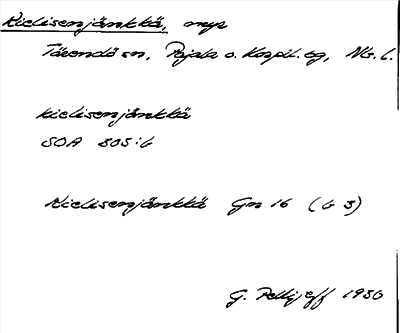 Kielisenjänkkä, myr
Tärendö sn, Pajala o. Korpil. tg, Nb. l.
kielisenjänkkä
SOA 505:6
Kielisenjänkkä Gn 16 (6 3)
G. Pellijeff 1950